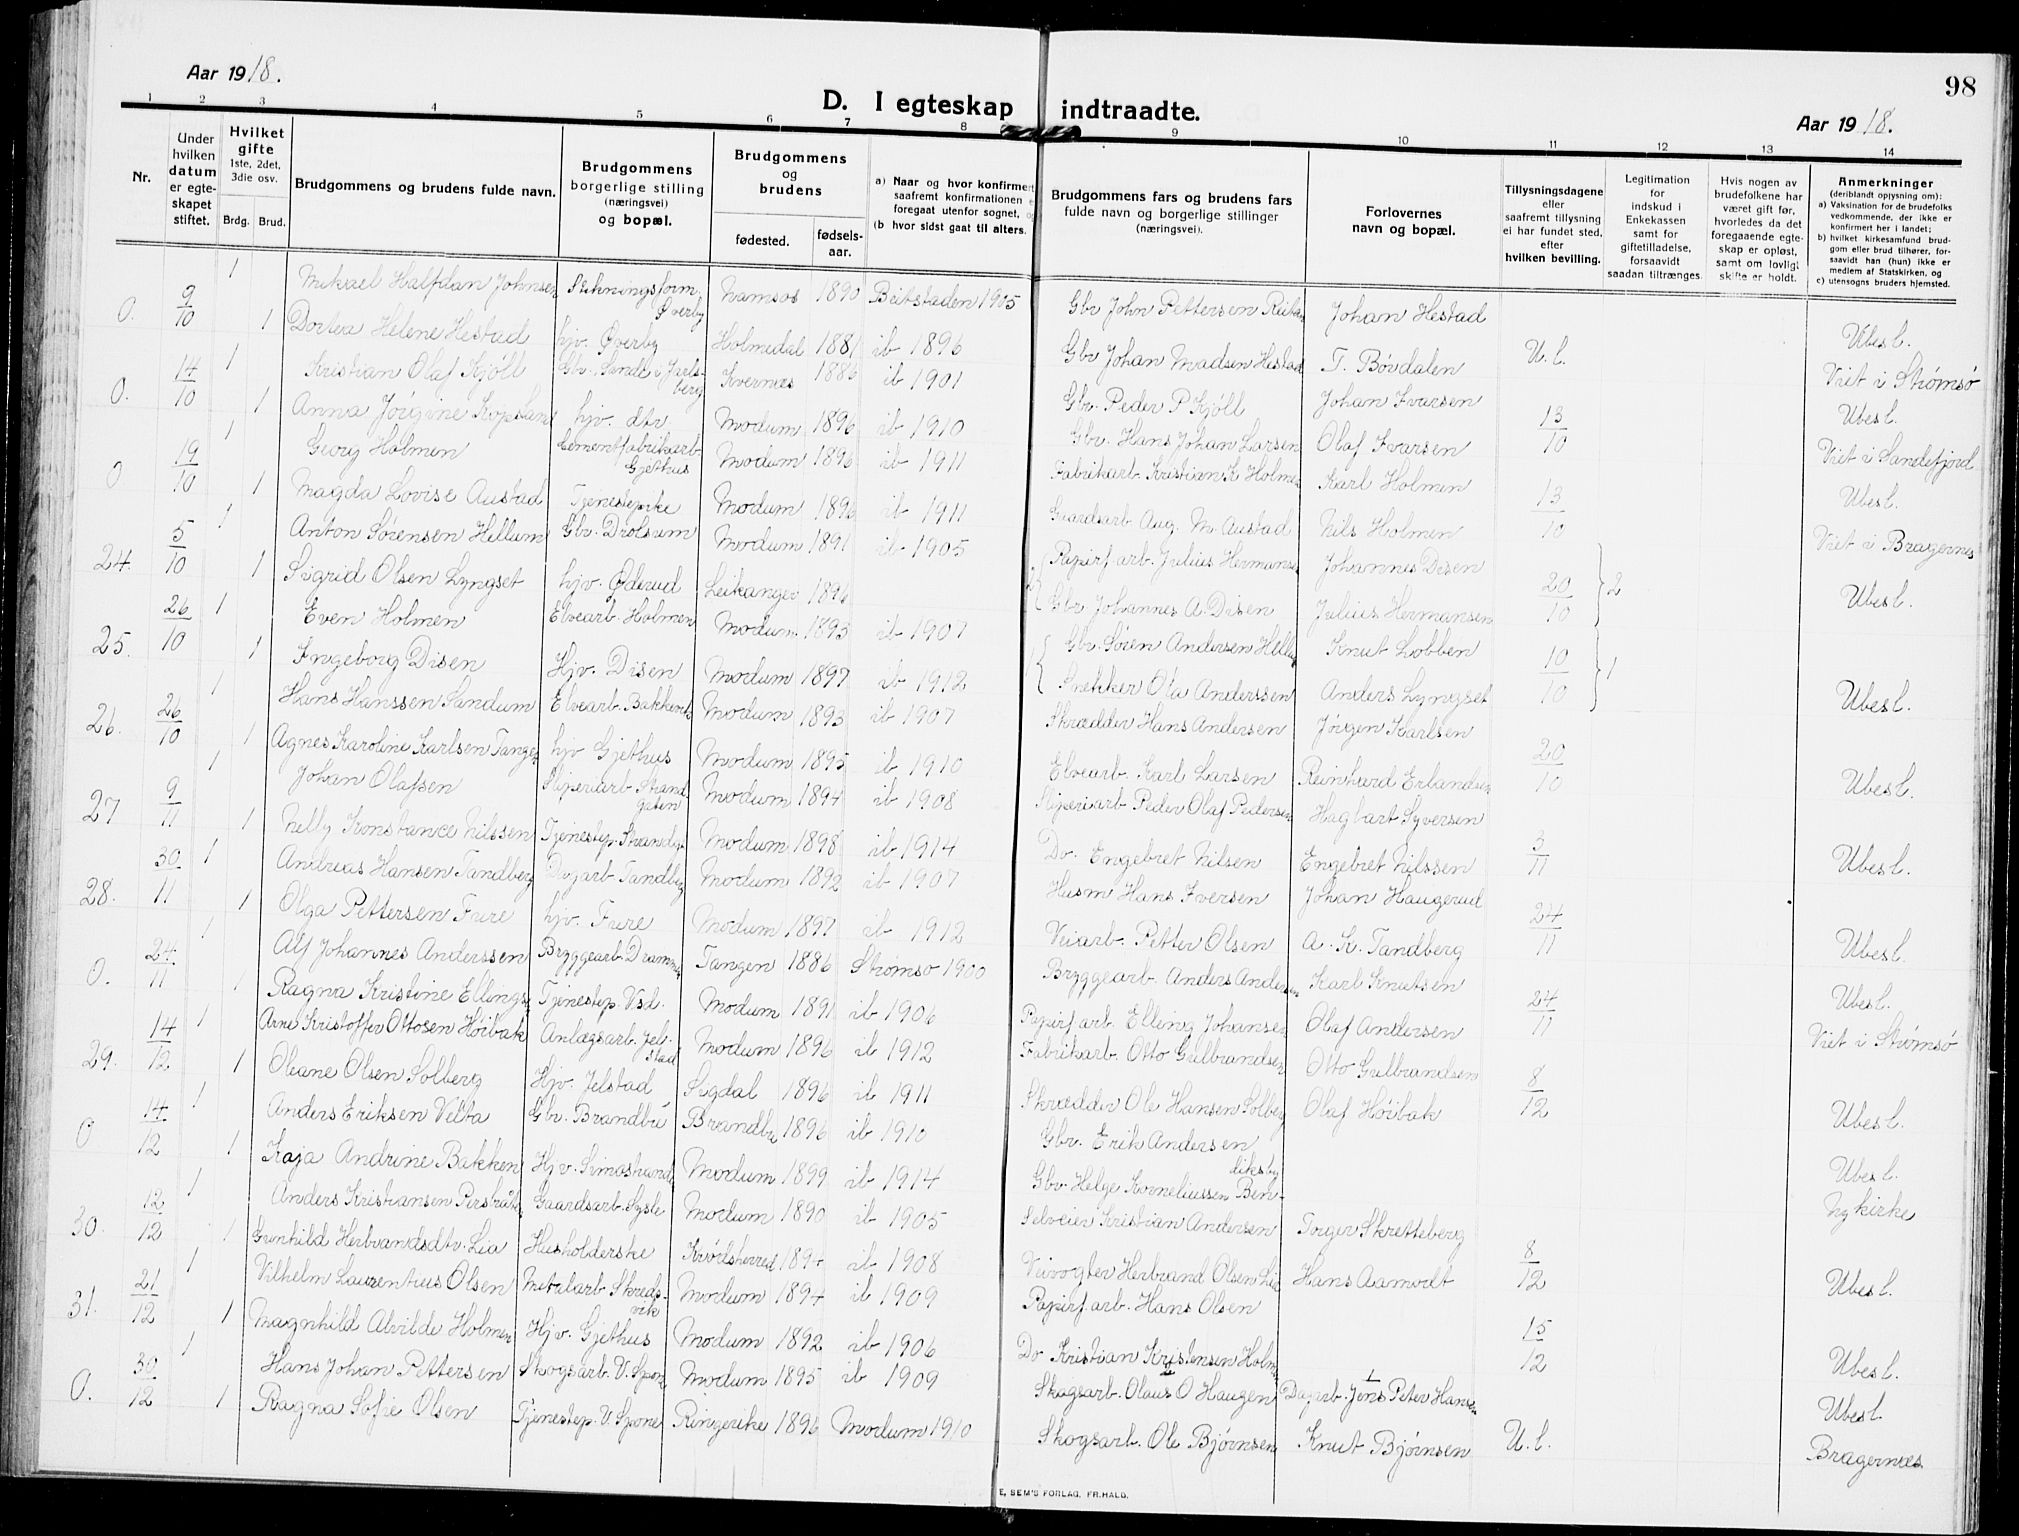 Aar 1918.
98
D. I egteskap indtraadte.
Aar 1918.
1 2 3 4 5 6 7 8 9 10 11 12 13 14
Nr.
Under hvilken datum er egteskapet stiftet.
Hvilket gifte 1ste, 2det, 3die osv.
Brdg. Brud.
Brudgommens og brudens fulde navn.
Brudgommens borgerlige stilling (næringsvei) og bopæl.
Brudgommens og brudens
fødested. fødselsaar.
a) Naar og hvor konfirmert saafremt konfirmationen foregaat utenfor sognet,
(b hvor sidst gaat til alters.
Brudgommens fars og brudens fars fulde navn og borgerlige stillinger (næringsvei).
Forlovernes navn og bopæl.
Tillysningsdagene eller saafremt tillysning ei har fundet sted, efter hvilken bevilling.
Legitimation for indskud i Enkekassen samt for giftetilladelse, forsaavidt saadan tiltrænges.
Hvis nogen av brudefolkene har været gift før, hvorledes da det foregaaende egteskap er opløst, samt om lovligt skifte er holdt.
Anmerkninger (deriblandt opysning om):
a) Vaksination for de brudefolks vedkommende, der ikke er konfirmert her i landet;
b) hvilket kirkesamfund brudgom eller brud tilhører, forsaavidt han (hun) ikke er medlem af Statskirken, og
c) utensogns bruders hjemsted.
O. 9/10 1 Mikael Halfdan Johnsen Øverby Namsos 1890 Beitstaden 1905 Gbr John Pettersen Johan Hestad
1 Dortea Helene Hestad hjv. Øverby Holmedal 1881 ib 1896 Gbr Johan Madsen Hestad T. Bøvdalen U. l. Ubesl. Viet i Strømsø
O. 14/10 1 Kristian Olaf Kjöll Gbr. Sande i Jarlsberg Kvernes 1886 ib 1901 Gbr. Peder P Kjöll Johan Ivarsen
1 Anna Jörgine hjv. dtv Modum 1896 ib 1910 Gbr. Hans Johan Larsen Olaf Ivarsen 13/10 Ubesl. Viet i Sandefjord
O 19/10 1 Georg Holmen Cementfabrikarb Gjethus Modum 1896 ib 1911 Fabrikarb. Kristian K Holmen Karl Holmen
1 Magda Lovise Austad Tjenestepike Modum 1896 ib 1911 Gaardsarb. Aug. M. Austad Nils Holmen 13/10 Ubesl. Viet i Bragernes
24. 5/10 1 Anton Sørensen Hellum Gbr. Drolsum Modum 1891 ib 1905 Papirfarb. Julius Hermansen Johannes Disen
1 Sigrid Olsen Lyngset hjv. Øderud Leikanger 1896 Gbr Johannes A. Disen Julius Hermansen 20/10 2 Ubesl.
25. 26/10 1 Even Holmen Elvearb. Holmen Modum 1893 ib 1907 Gbr. Sören Andersen Knut Lobben
1 Ingeborg Disen Hjv. Disen Modum 1897 ib 1912 Snekker Ola Anderssen Anders Lyngset 10/10 1 Ubesl.
26. 26/10 1 Hans Hanssen Sandum Elvearb. Modum 1893 ib 1907 Skrædder Hans Andersen Jørgen Karlsen
1 Agnes Karoline Karlsen Tangen hjv Gjethus Modum 1895 ib 1910 Elvearb. Karl Larsen Reinhard Erlandsen 20/10 Ubesl.
27 9/11 1 Johan Olafsen Sliperiarb Strandgaten Modum 1894 ib 1908 Sliperiarb Peder Olaf Pedersen Hagbart Syversen
1 Nelly Konstance Nilssen Tjenestep. Modum 1898 ib 1914 Do. Engebret Nilsen Engebret Nilssen 3/11 Ubesl.
28. 30/11 1 Andreas Hansen Tandberg Dagarb Tandberg Modum 1892 ib 1907 Husm Hans Iversen Johan Haugerud
1 Olga Pettersen Fure hjv. Fure Modum 1897 ib 1912 Veiarb. Petter Olsen A. K. Tandberg 24/11 Ubesl.
O. 24/11 1 Alf Johannes Anderssen Bryggearb. Drammen Tangen 1886 Strømsø 1900 Bryggearb. Anders Andersen Karl Knutsen
1 Ragna Kristine Ellingsen Tjenestep. Modum 1891 ib 1906 Papirfarb. Elling Johansen Olaf Andersen 24/11 Ubesl. Viet i Strømsø
29. 14/12 1 Arne Kristoffer Ottosen Höibak Anlægsarb. Jelstad Modum 1896 ib 1912 Fabrikarb. Otto Gulbrandsen Otto Gulbrandsen
1 Oleane Olsen Solberg Hjv. Jelstad Sigdal 1896 ib 1911 Skrædder Ole Hansen Solberg Olaf Höibak 8/12 Ubesl.
O 14/12 1 Anders Eriksen Velta Gbr. Brandbu Brandbu 1896 ib 1910 Gbr. Erik Andersen
1 Kaja Andrine Bakken Hjv. Simostrand Modum 1899 ib 1914 Gbr. Helge Korneliussen Bendiksby Ubesl. Nykirke
30. 12/12 1 Anders Kristiansen Gaardsarb. Sysle Modum 1890 ib 1905 Selveier Kristian Andersen Torger Skretteberg
1 Gunhild Herbrandsdtr. Lia Husholderske Krödsherred 1894 ib 1908 Veivogter Herbrand Olsen Lia Hans Aamodt 8/12 Ubesl.
31. 21/12 1 Vilhelm Laurentius Olsen Metalarb Skredsvik Modum 1894 ib 1909 Papirfarb. Hans Olsen
1 Magnhild Alvilde Holmen Hjv. Gjethus Modum 1892 ib 1906 Do Kristian Kristensen Holmen 15/12 Ubesl.
O. 30/12 1 Hans Johan Pettersen Skogsarb. V. Spone Modum 1895 ib 1909 Skogsarb. Olaus O Haugen Dagarb. Jens Peter Hansen Ubesl.
1 Ragna Sofie Olsen Tjenestep. V. Spone Ringerike 1896 Modum 1910 Skogsarb. Ole Bjørnsen Knut Bjørnsen U. l. Bragernæs
E. SEM'S FORLAG, FR.HALD.